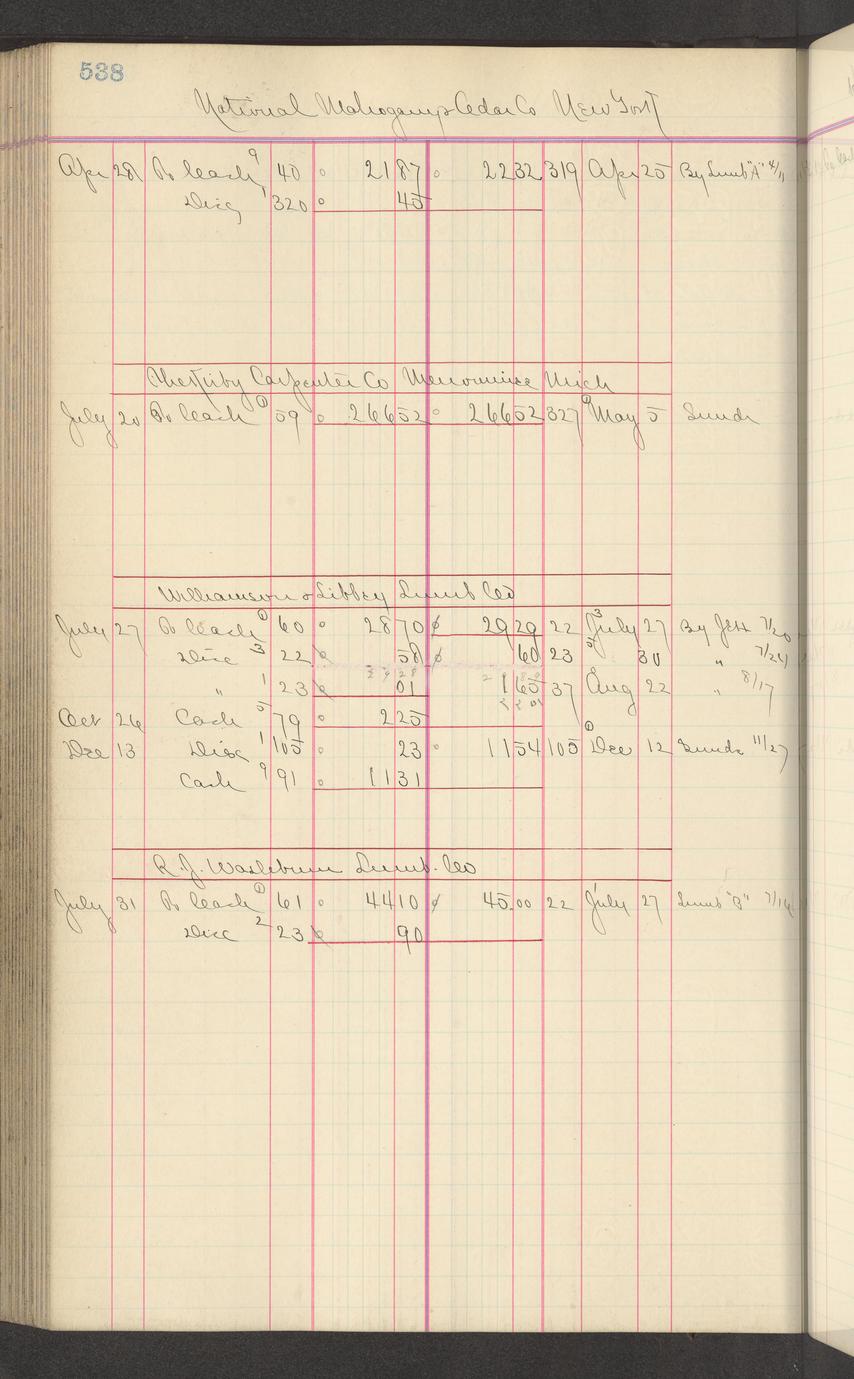 538
National Mahogany & Cedar Co New York
Apr 28 To Cash 9 40 21 87 22 32 319 Apr 25 By Lumb "A" 4/11
Disc 1 320 45
Carpenter Co Menominee Mich
July 20 To Cash 1 59 266 52 266 52 327 May 5 Sunds
Williamson & Libbey Lumb Co
July 27 To Cash 1 60 28 70 29 29 22 3 July 27 By 7/20
Disc 3 22 58 60 23 30 " 7/24
" 1 23 01 1 65 37 Aug 22 " 8/17
Oct 26 Cash 5 79 2 25
Dec 13 Disc 1 105 23 11 54 105 1 Dec 12 Sunds 11/27
Cash 9 91 11 31
R.J. Washburn Lumb. Co
July 31 To Cash 1 61 44 10 45.00 22 1 July 27 Lumb "B" 7/16
Disc 2 23 90